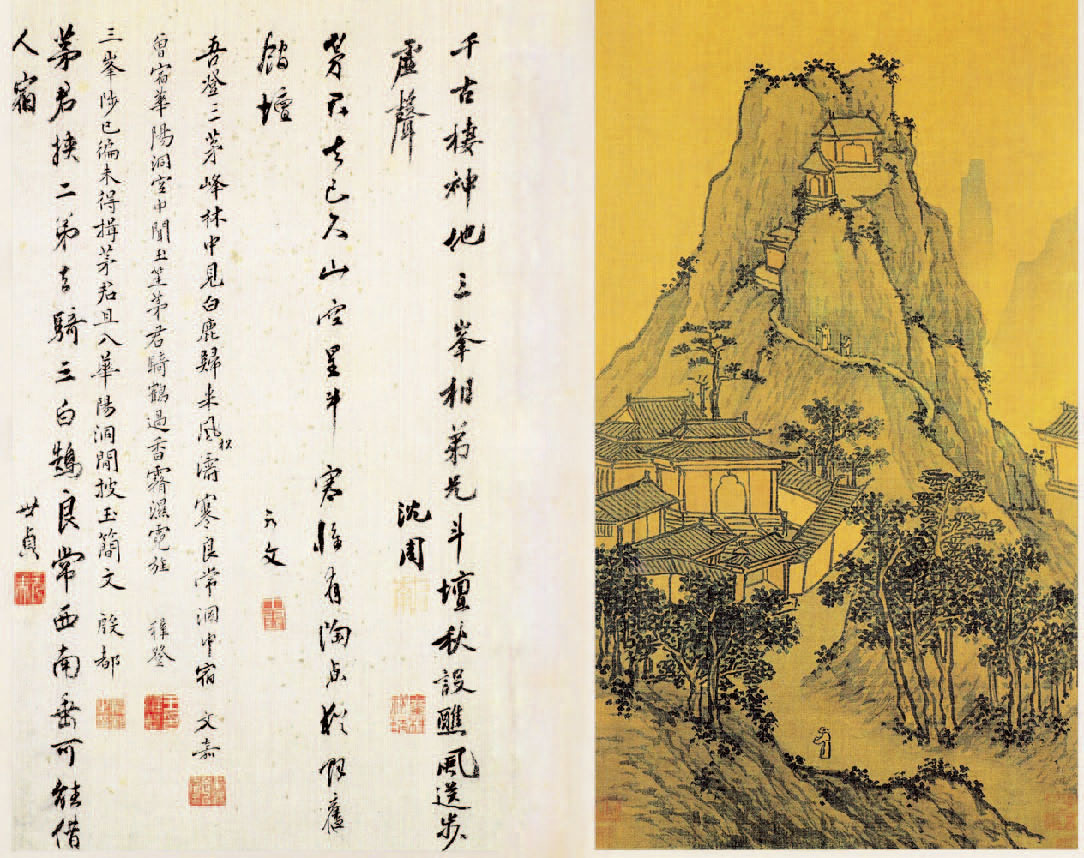 千古棲神地三峯相弟兄斗壇秋設醮風送步
虛聲 沈周
茅君去已久山空星斗寒惟有陶舊
館壇 允文
吾登三茅峰林中見白鹿歸來風松濤寒良常洞中宿 文嘉
曾宿華陽洞空中聞玉笙茅君騎鶴過香霧濕霓旌 穉登
三峯陟已徧未得揖茅君且入華陽洞閒披玉簡文 殷都
茅君挾二弟去騎三白鵠良常西南垂可能借
人宿 世貞